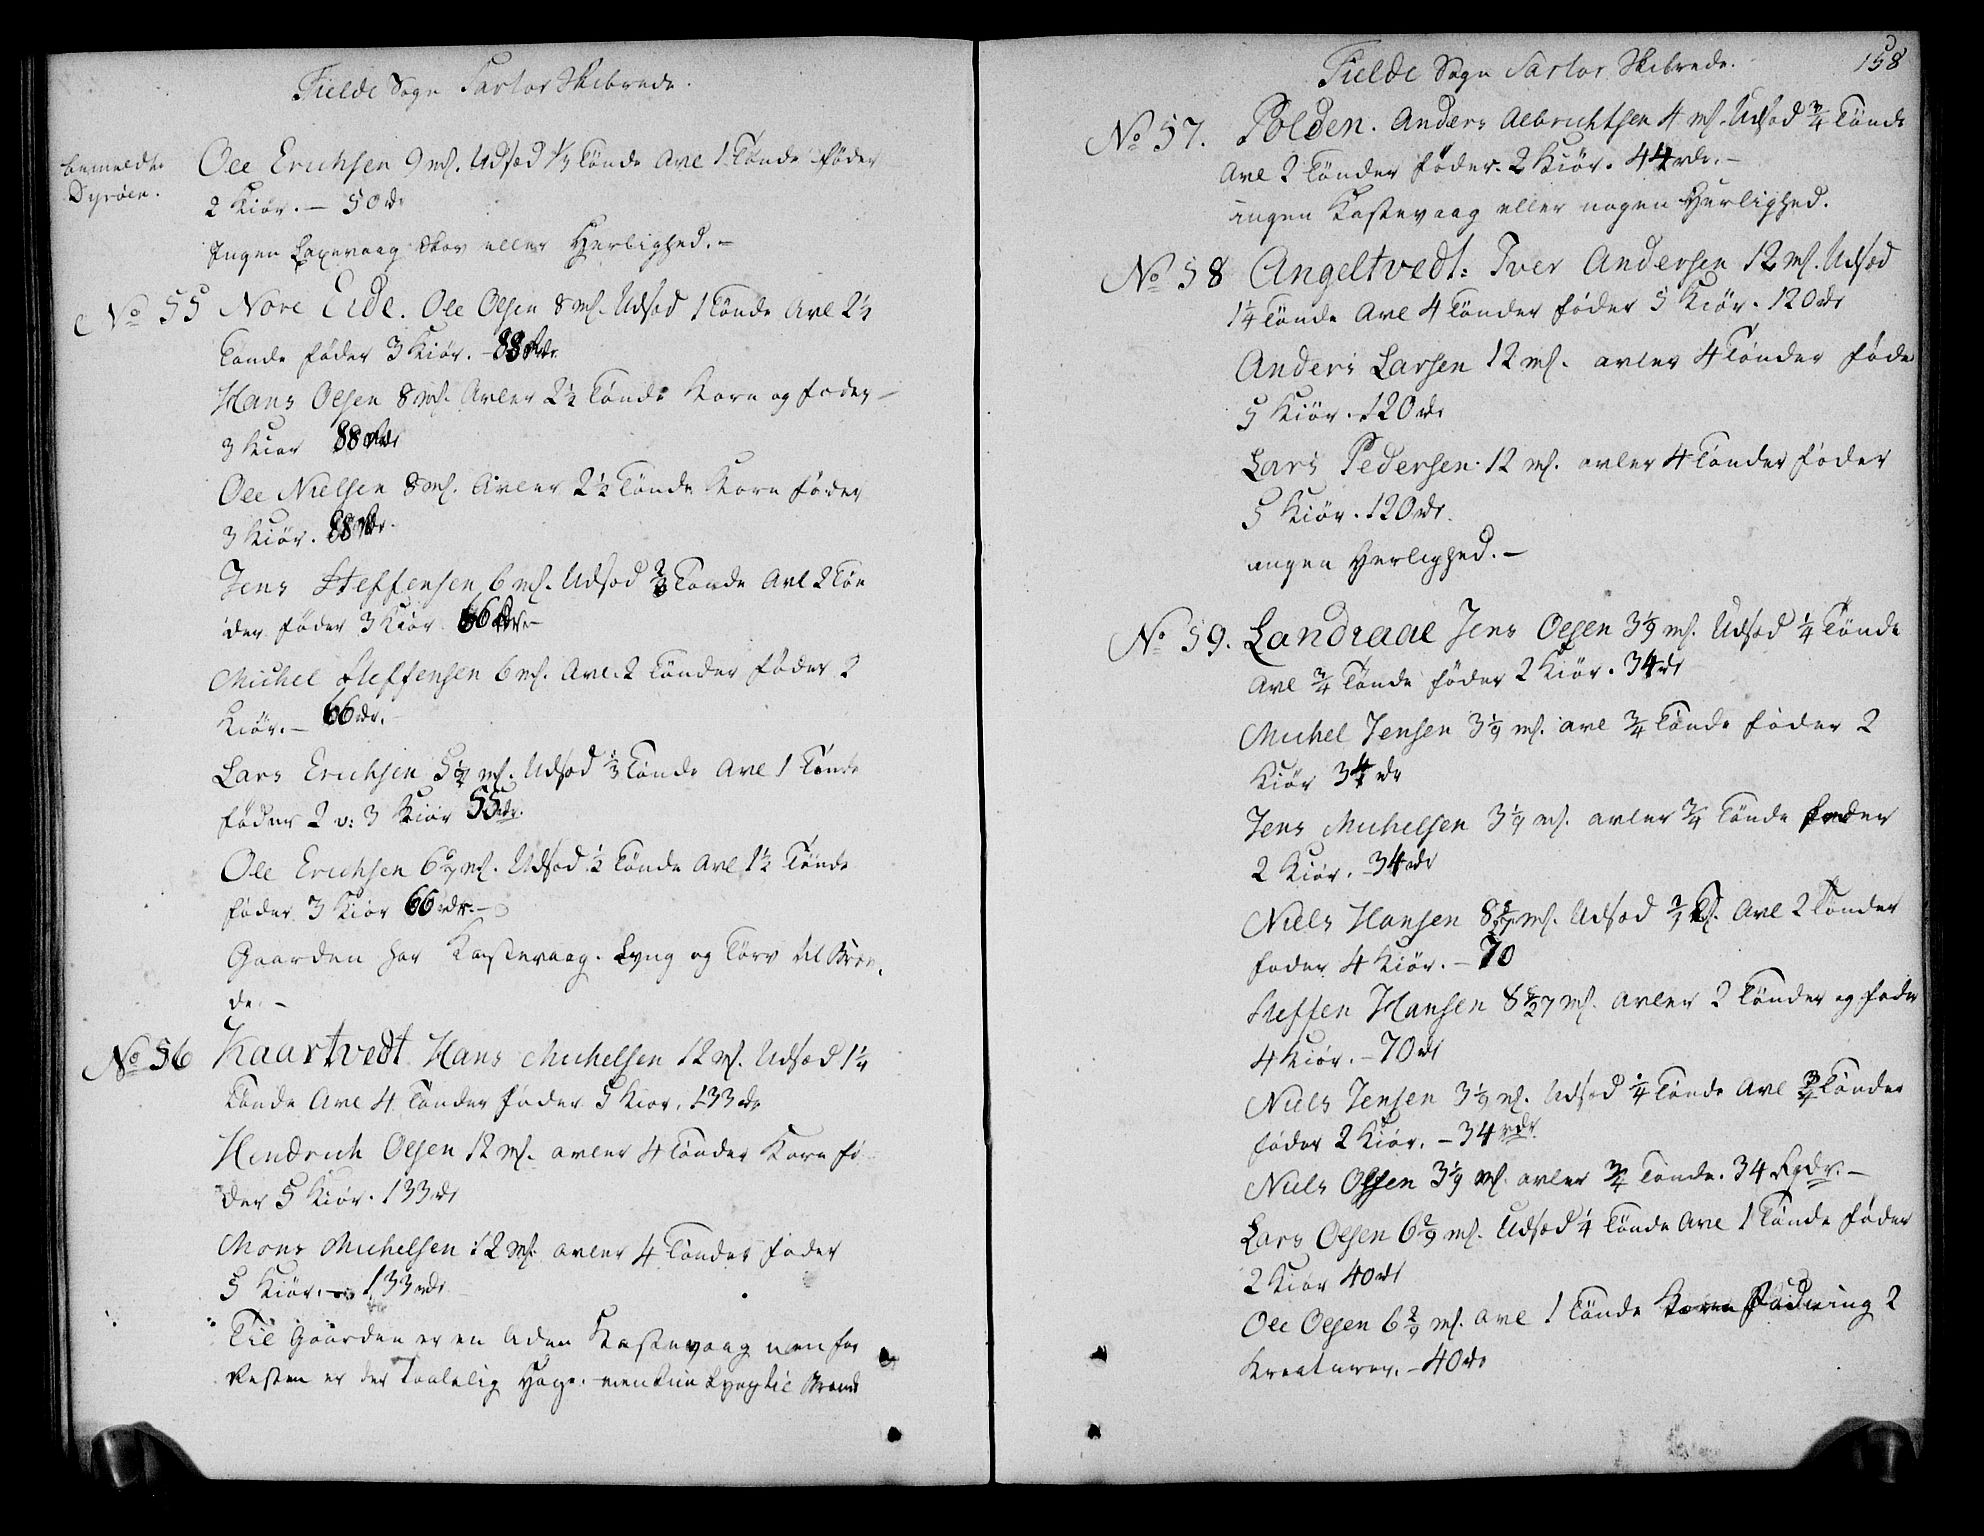 Fielde Sogn Sartor Skibrede.
bemeldte
Dyrøen.
Ole Erichsen 9 mſ. Udsæd ½ Tönde Avl 1 Tönde föder
2 Kiör. — 50 rdr
Ingen Laxevaag Skov eller Herlighed. —
No 55 Nore Eide. Ole Olsen 8 mſ. Udsæd 1 Tönde Avl 2½
Tönde föder 3 Kiör. — 88 Rdr.
Hans Olsen 8 mſ. Avler 2½ Tönde Korn og föder —
3 Kiör 88 Rdr
Ole Nielsen 8 mſ. Avler 2½ Tönde Korn föder
3 Kiör. 88 Rdr.
Jens Steffensen 6 mſ. Udsæd Tönde Avl 2 Tön
der föder 3 Kiör 66 Rdr. —
Michel Steffensen 6 mſ. Avl. 2 Tönder föder 2
Kiör. — 66 rdr.
Lars Erichsen 5 mſ. Udsæd ⅓ Tönde Avl 1 Tönde
föder 2 a: 3 Kiör 55 rdr.
Ole Erichsen 6 mſ. Udsæd ½ Tönde Avl 1½ Tönde
föder 3 Kiör 66 rdr. —
Gaarden har Kastevaag. Lyng og Torv til Bræn,
de. —
No 56 Kaartvedt Hans Michelsen 12 mſ. Udsæd 1¼
Tönde Avl 4 Tönder föder 5 Kiör. 133 rdr
Hendrich Olsen 12 mſ. avler 4 Tönder Korn fö
der 5 Kiör. 133 rdr
Mons Michelsen 12 mſ. avler 4 Tönder föder
5 Kiör. — 133 rdr
Til Gaarden er en liden Kastevaag men for
Resten er der Taalelig Hage. men kun Lyng til Brænde
Fielde Sogn Sartor Skibrede.
158
No 57. Polden. Anders Albrichtsen 4 mſ. Udsæd ¾ Tönde
Avl 2 Tönder föder. 2 Kiör. 44 rdr. —
ingen Kastevaag eller nogen Herlighed.
No 58 Angeltvedt: Iver Andersen 12 mſ. Udsæd
1¼ Tönde Avl 4 Tönder föder 5 Kiör. 120 rdr
Anders Larsen 12 mſ. avler 4 Tönder föder
5 Kiör. 120 rdr
Lars Pedersen 12 mſ. avler 4 Tönder föder
5 Kiör. 120 rdr.
ingen Herlighed. —
No 59. Landraae Jens Olsen 3 1/9 mſ. Udsæd ¼ Tönde
Avl ¾ Tönde föder 2 Kiör. 34 rdr
Michel Jensen 3 1/9 mſ. avl ¾ Tönde föder 2
Kiör 34 rdr
Jens Michelsen 3 1/9 mſ. avler ¾ Tönde föder
2 Kiör. 34 rdr
Niels Hansen 8 8/27 mſ. Udsæd Avl 2 Tönder
föder 4 Kiör. — 70
Steffen Hansen 8 8/27 mſ. avler 2 Tönder og föder
4 Kiör. — 70 rdr
Niels Jensen 3 1/9 mſ. Udsæd ¼ Tönde Avl ¾ Tönder
föder 2 Kiör. — 34 rdr.
Niels Olsen 3 1/9 mſ. avler ¾ Tönde. 34 Rgdr. —
Lars Olsen 6 2/9 mſ. Udsæd ¼ Tönde Avl 1 Tönde föder
2 Kiör 40 rdr
Ole Olsen 6 2/9 mſ. avl 1 Tönde Korn Födning 2
Kreaturer. — 40 rdr